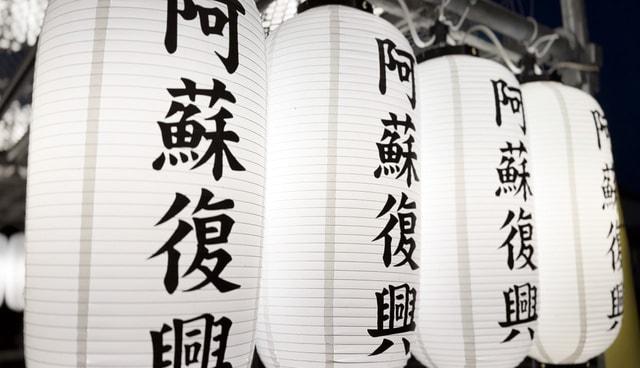 阿蘇復興
阿蘇復興
阿蘇復興
阿蘇復興